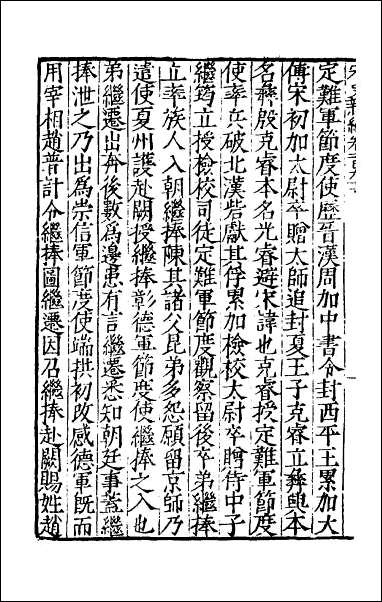 定難軍節度使歷晉漢周加中書令封西平王累加大
傅宋初加太尉卒贈大師追封夏王子克睿立彝興本
名彝殷克睿本名光睿避宋諱也克睿授定難軍節度
使率兵破北漢砦獻其俘累加檢校太尉卒贈侍中子
繼筠立授檢校司徒定難軍節度觀察留後卒弟繼捧
立率族人入朝繼捧陳其諸父昆弟多怨願留京師乃
遣使夏州護赴闕授繼捧彰德軍節度使繼捧之入也
弟繼遷出奔後數爲邊患有言繼遷悉知朝廷事蓋繼
捧泄之乃出爲崇信軍節度使端拱初改感德軍既而
用宰相趙普計令繼捧圖繼遷因召繼捧赴闕賜姓趙